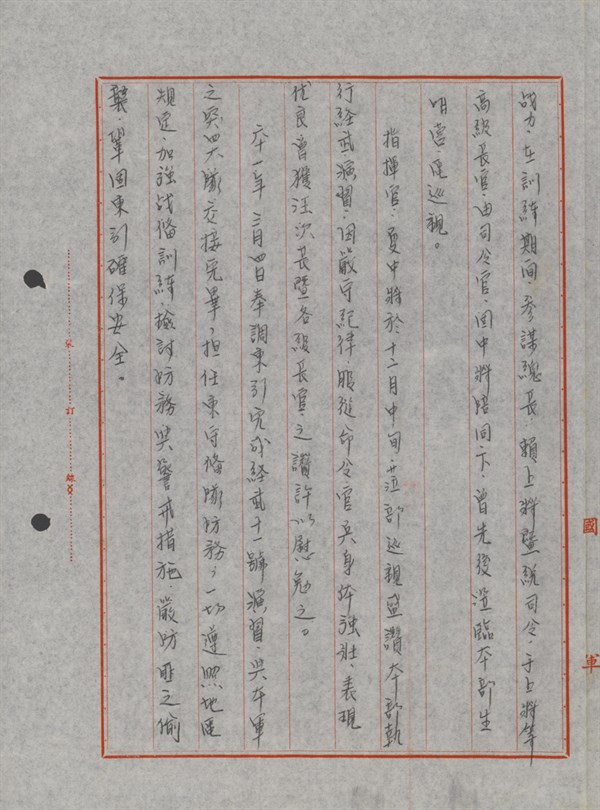 战力，在訓練期间，参謀總長，賴上將暨総司令，于上將等
高级長官，由司令官，田中將陪同下，曾先後蒞臨本部生
明营區巡視。
指揮官，夏中將於十二月中旬，蒞部巡視盛讚本部執
行経武演習，因嚴守紀律，服從命令官兵身体強壮，表現
优良曾獲汪次長暨各級長官之讚許以慰勉之。
六一年三月四日奉調東引完成経武十一號演習，與本軍
之突四大隊交接完畢，担任東守備隊防務，一切遵照地區
規定，加強战俻訓練，檢討防務與警戒措施嚴防匪之偷
襲，鞏固東引確保安全。
裝訂線
國軍